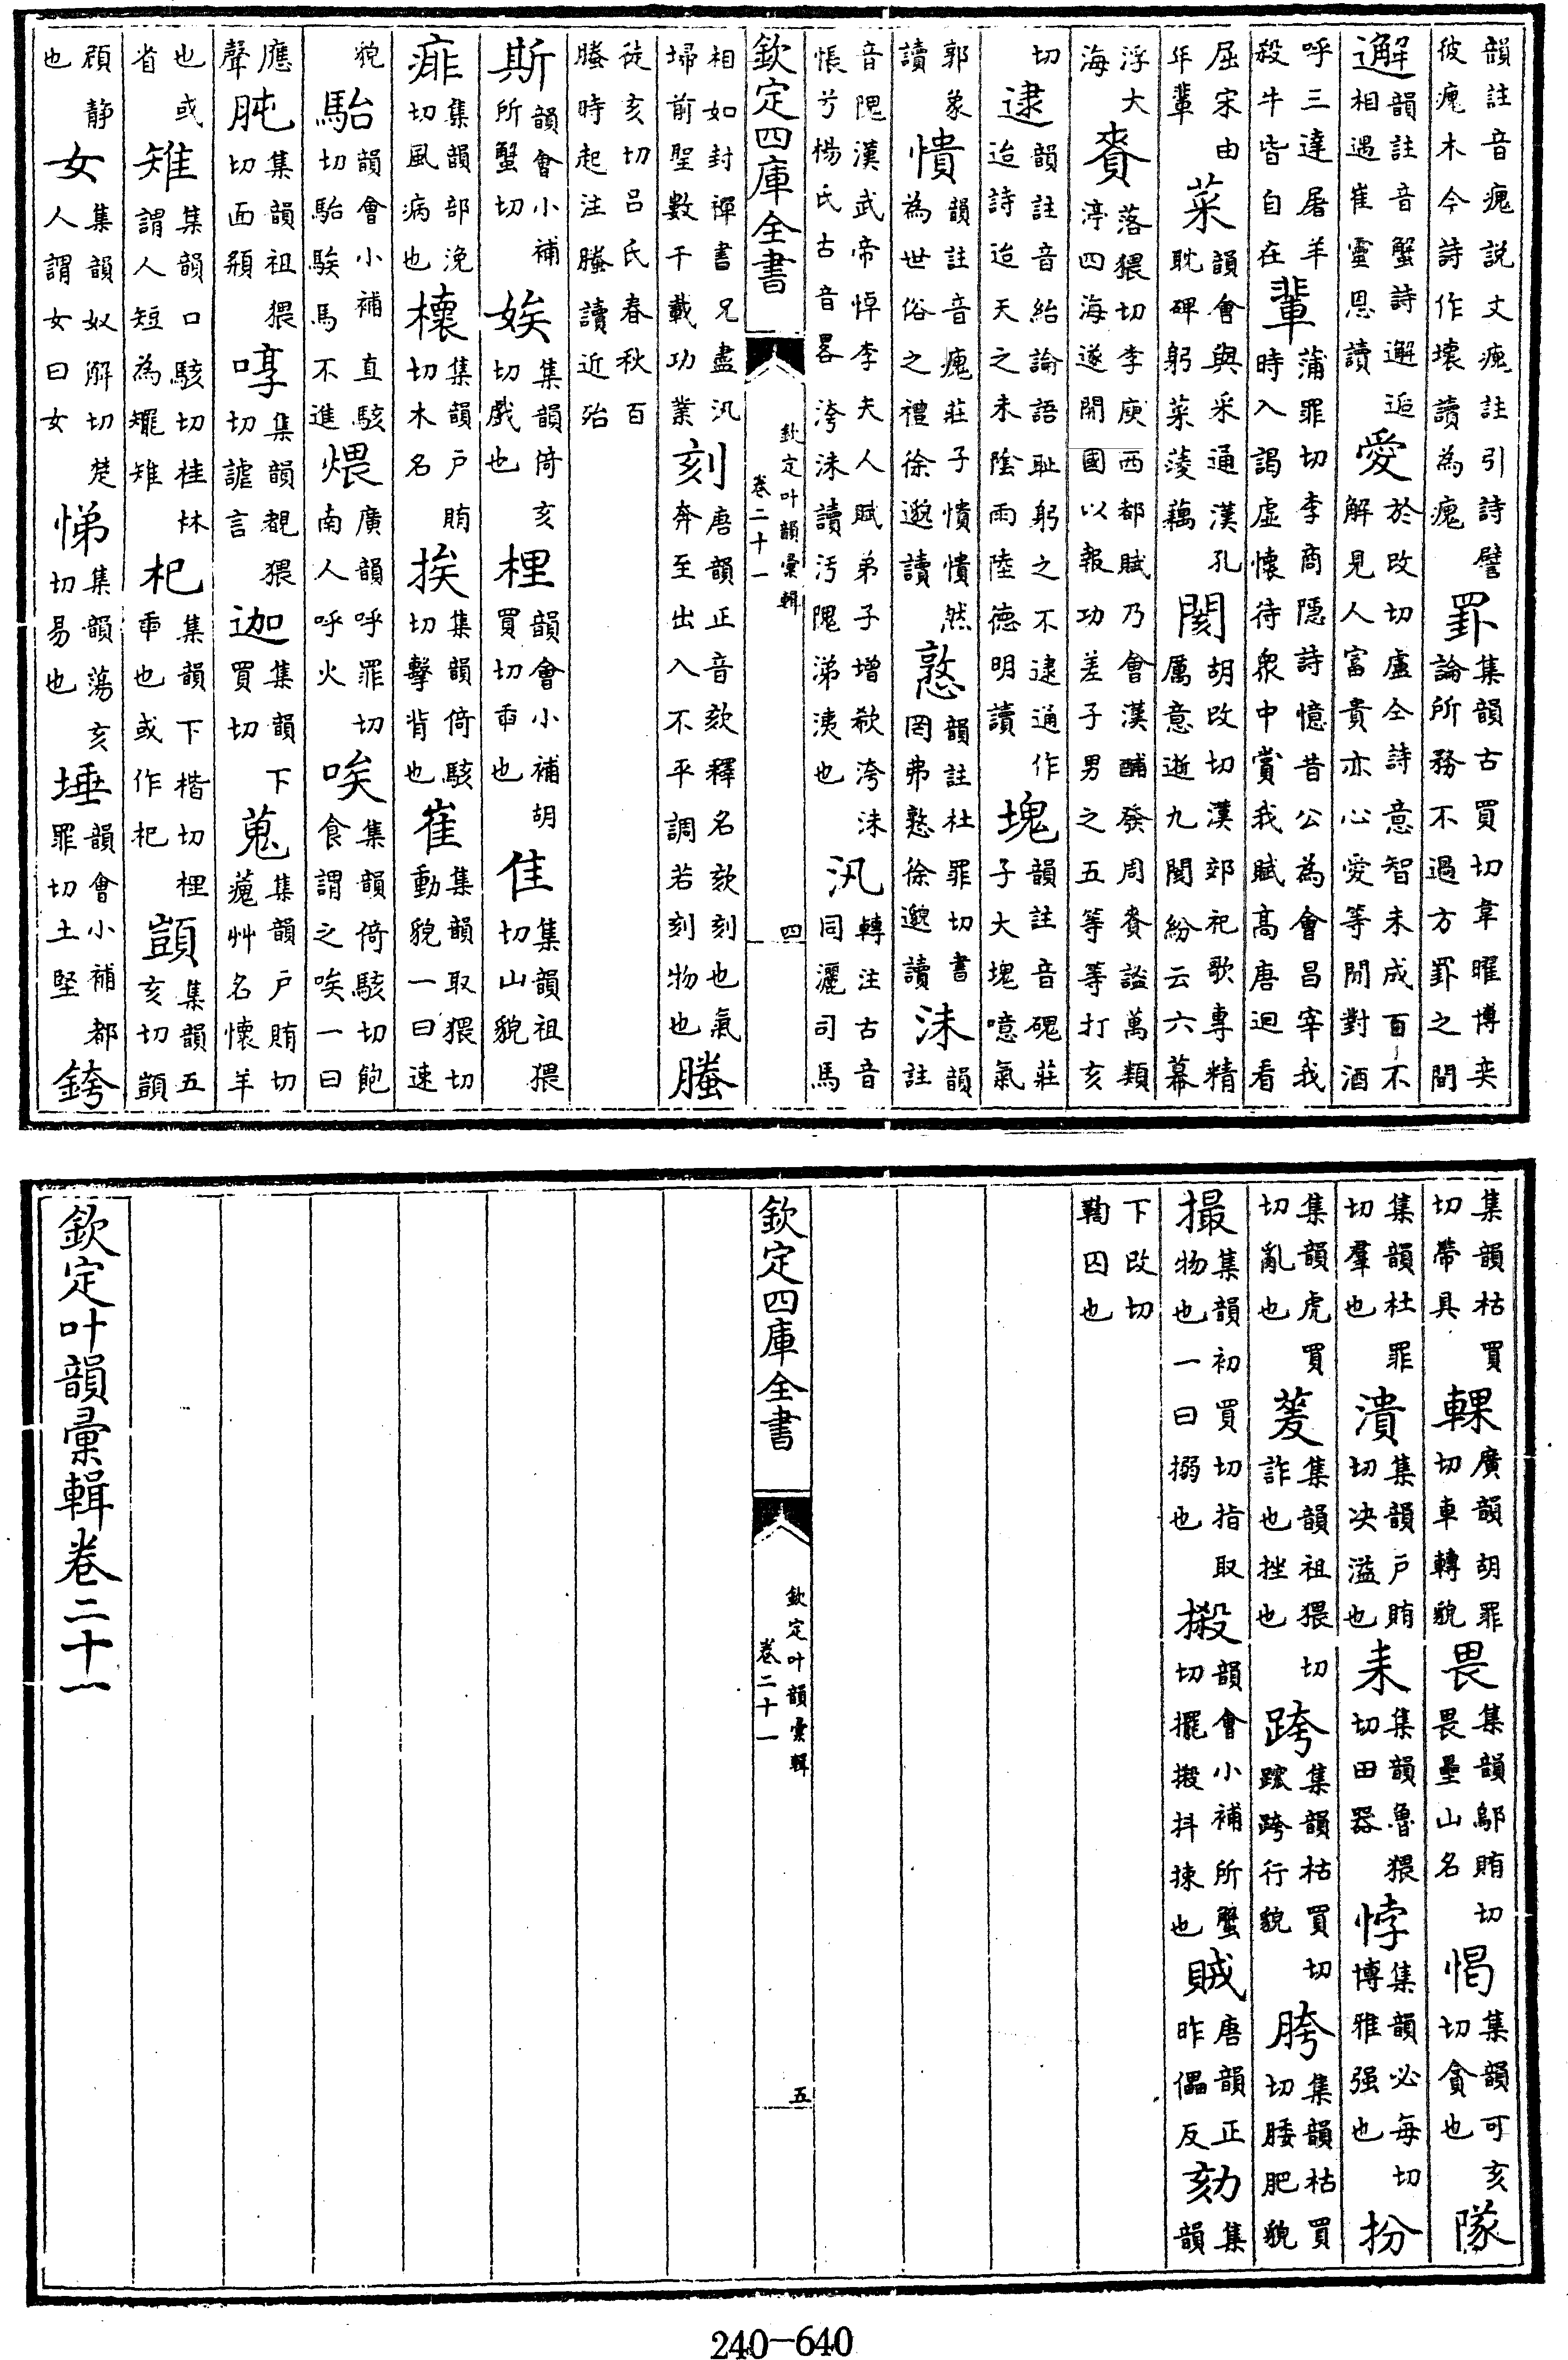 韻註音瘣説文瘣註引詩譬彼瘣木今詩作壊讀為瘣罫集韻古買切韋曜博奕論所務不過方罫之間
邂韻註音蟹詩邂逅相遇崔靈恩讀愛於改切盧仝詩意智未成百不解見人富貴亦心愛等閒對酒
呼三達屠羊殺牛皆自在輩蒲罪切李商隱詩憶昔公為會昌宰我時入謁虚懷待衆中賞我賦高唐迴看
屈宋由年輩菜韻會與采通漢孔耽碑躬菜蔆藕閡胡改切漢郊祀歌專精厲意逝九閡紛云六幕
浮大海賚落猥切李庾西都賦乃會漢酺發周賚謚萬類渟四海遂開國以報功差子男之五等等打亥
切逮韻註音紿論語耻躬之不逮通作迨詩迨天之未隂雨陸德明讀塊韻註音磈莊子大塊噫氣
郭象讀憒韻註音瘣莊子憒憒然為世俗之禮徐邈讀憝韻註杜罪切書罔弗憝徐邈讀沬韻註
音隗漢武帝悼李夫人賦弟子增欷洿沬悵兮楊氏古音畧洿沬讀污隗涕洟也汎轉注古音同灑司馬
欽定四庫全書 欽定叶韻彚輯 卷二十一 四
相如封禪書兄盡汎埽前聖數千載功業刻唐韻正音欬釋名欬刻也氣奔至出入不平調若刻物也螣
徒亥切吕氏春秋百螣時起注螣讀近殆
斯韻會小補所蟹切娭集韻倚亥切戲也梩韻會小補胡買切乖也隹集韻祖猥切山貌
痱集韻部浼切風病也櫰集韻户賄切木名挨集韻倚駭切擊背也崔集韻取猥切動貌一曰速
貌駘韻會小補直駭切駘騃馬不進煨廣韻呼罪切南人呼火唉集韻倚駭切飽食謂之唉一曰
應聲肫集韻祖猥切面頯啍集韻覩猥切謔言迦集韻下買切蒐集韻户賄切艸名懷羊
也或省雉集韻口駭切桂林謂人短為矲雉杷集韻下楷切梩乖也或作杷顗集韻五亥切顗
頋静也女集韻奴解切楚人謂女曰女悌集韻蕩亥切易也埵韻會小補都罪切土堅銙
集韻枯買切帶具輠廣韻胡罪切車轉貌畏集韻鄔賄切畏壘山名愒集韻可亥切貪也隊
集韻杜罪切羣也潰集韻户賄切决溢也耒集韻魯猥切田器悖集韻必每切博雅强也扮
集韻虎買切亂也蓌集韻祖猥切詐也挫也跨集韻枯買切跨行貌胯集韻枯買切骽肥貌
撮集韻初買切指取物也一曰搦也摋韻會小補所蟹切擺摋抖揀也賊唐韻正昨儡反劾集韻
下改切鞫囚也
欽定四庫全書 欽定叶韻彚輯 卷二十一 五
欽定叶韻彚輯卷二十一
240-640